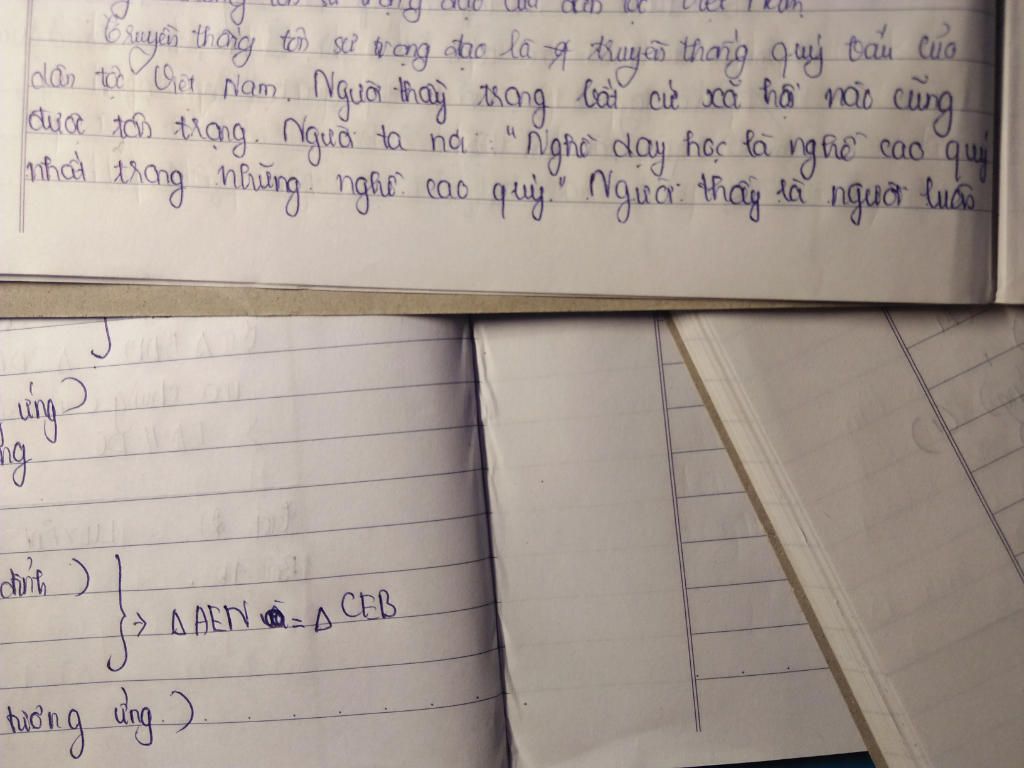 trọng đạo của dân tộc Việt Nam
Truyền thống tôn sư trọng đạo là truyền thống quý báu của
dân tộc Việt Nam. Người thầy trong bất cứ xã hội nào cũng
được tôn trọng. Người ta nói: "Nghề dạy học là nghề cao quý
nhất trong những nghề cao quý." Người thầy là người luôn
ứng)
ng
đỉnh)
} → Δ AEN = Δ CEB
tương ứng)